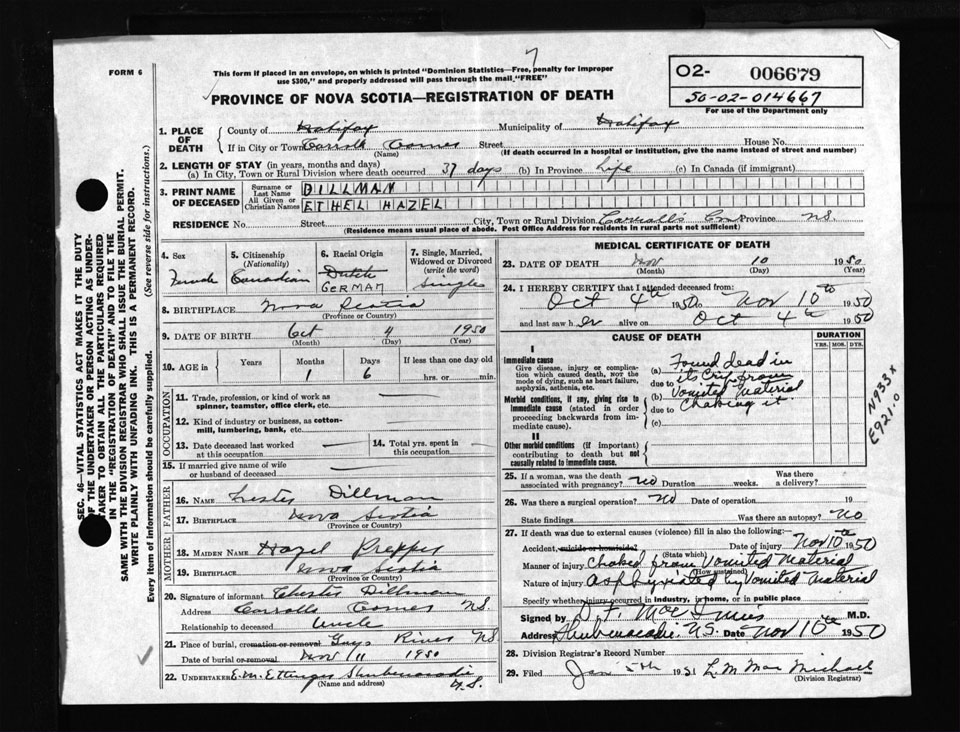 7
FORM 6
This form if placed in an envelope, on which is printed "Dominion Statistics—Free, penalty for improper
use $300," and properly addressed will pass through the mail "FREE"
PROVINCE OF NOVA SCOTIA—REGISTRATION OF DEATH
02- 006679
50-02-014667
For use of the Department only
SEC. 46—VITAL STATISTICS ACT MAKES IT THE DUTY
OF THE UNDERTAKER OR PERSON ACTING AS UNDER-
TAKER TO OBTAIN ALL THE PARTICULARS REQUIRED
IN THE "REGISTRATION OF DEATH" AND TO FILE THE
SAME WITH THE DIVISION REGISTRAR WHO SHALL ISSUE THE BURIAL PERMIT.
WRITE PLAINLY WITH UNFADING INK. THIS IS A PERMANENT RECORD.
Every item of information should be carefully supplied. (See reverse side for instructions.)
1. PLACE OF DEATH County of Halifax Municipality of Halifax
If in City or Town Carrolls Corner Street House No.
(Name) (If death occurred in a hospital or institution, give the name instead of street and number)
2. LENGTH OF STAY (in years, months and days)
(a) In City, Town or Rural Division where death occurred 37 days (b) In Province Life (c) In Canada (if immigrant)
3. PRINT NAME OF DECEASED Surname or Last Name DILLMAN
All Given or Christian Names ETHEL HAZEL
RESIDENCE No. Street City, Town or Rural Division Carroll's Cor Province N.S.
(Residence means usual place of abode. Post Office Address for residents in rural parts not sufficient)
4. Sex 5. Citizenship (Nationality) 6. Racial Origin 7. Single, Married, Widowed or Divorced (write the word)
Female Canadian Dutch GERMAN Single
8. BIRTHPLACE Nova Scotia
(Province or Country)
9. DATE OF BIRTH Oct 4 1950
(Month) (Day) (Year)
10. AGE in Years Months Days If less than one day old
1 6 hrs. or min.
OCCUPATION
11. Trade, profession, or kind of work as
spinner, teamster, office clerk, etc.
12. Kind of industry or business, as cotton-
mill, lumbering, bank, etc.
13. Date deceased last worked at this occupation 14. Total yrs. spent in this occupation
15. If married give name of wife
or husband of deceased
FATHER
16. NAME Lester Dillman
17. BIRTHPLACE Nova Scotia
(Province or Country)
MOTHER
18. MAIDEN NAME Hazel
19. BIRTHPLACE Nova Scotia
(Province or Country)
20. Signature of informant Dillman
Address Carrolls Corner N.S.
Relationship to deceased Uncle
21. Place of burial, cremation or removal Gays River NS
Date of burial or removal Nov 11 1950
22. UNDERTAKER E. M. Ettinger Shubenacadie
(Name and address) N.S.
MEDICAL CERTIFICATE OF DEATH
23. DATE OF DEATH Nov 10 1950
(Month) (Day) (Year)
24. I HEREBY CERTIFY that I attended deceased from:
Oct 4th 1950 to Nov 10th 1950
and last saw her alive on Oct 4th 1950
CAUSE OF DEATH DURATION
YRS. MOS. DYS.
I
Immediate cause
Give disease, injury or complica-
tion which caused death, NOT the
mode of dying, such as heart failure,
asphyxia, asthenia, etc.
Morbid conditions, if any, giving rise to
immediate cause (stated in order
proceeding backwards from im-
mediate cause).
II
Other morbid conditions (if important)
contributing to death but not
causally related to immediate cause.
(a) Found dead in
due to its Crib from
(b) Vomited Material
due to Choking it
(c)
N933X
E921.0
25. If a woman, was the death associated with pregnancy? NO Duration weeks. Was there a delivery?
26. Was there a surgical operation? NO Date of operation 19
State findings Was there an autopsy? NO
27. If death was due to external causes (violence) fill in also the following:
Accident, suicide or homicide? Date of injury Nov 10th 1950
(State which)
Manner of injury Choked from Vomited Material
(How sustained)
Nature of injury Asphyxiated by Vomited Material
Specify whether injury occurred in industry, in home, or in public place
Signed by D. F. M.D.
Address Shubenacadie N.S. Date Nov 10th 1950
28. Division Registrar's Record Number
29. Filed Jan 5th 1951 L. M. Mac Michael
(Division Registrar)